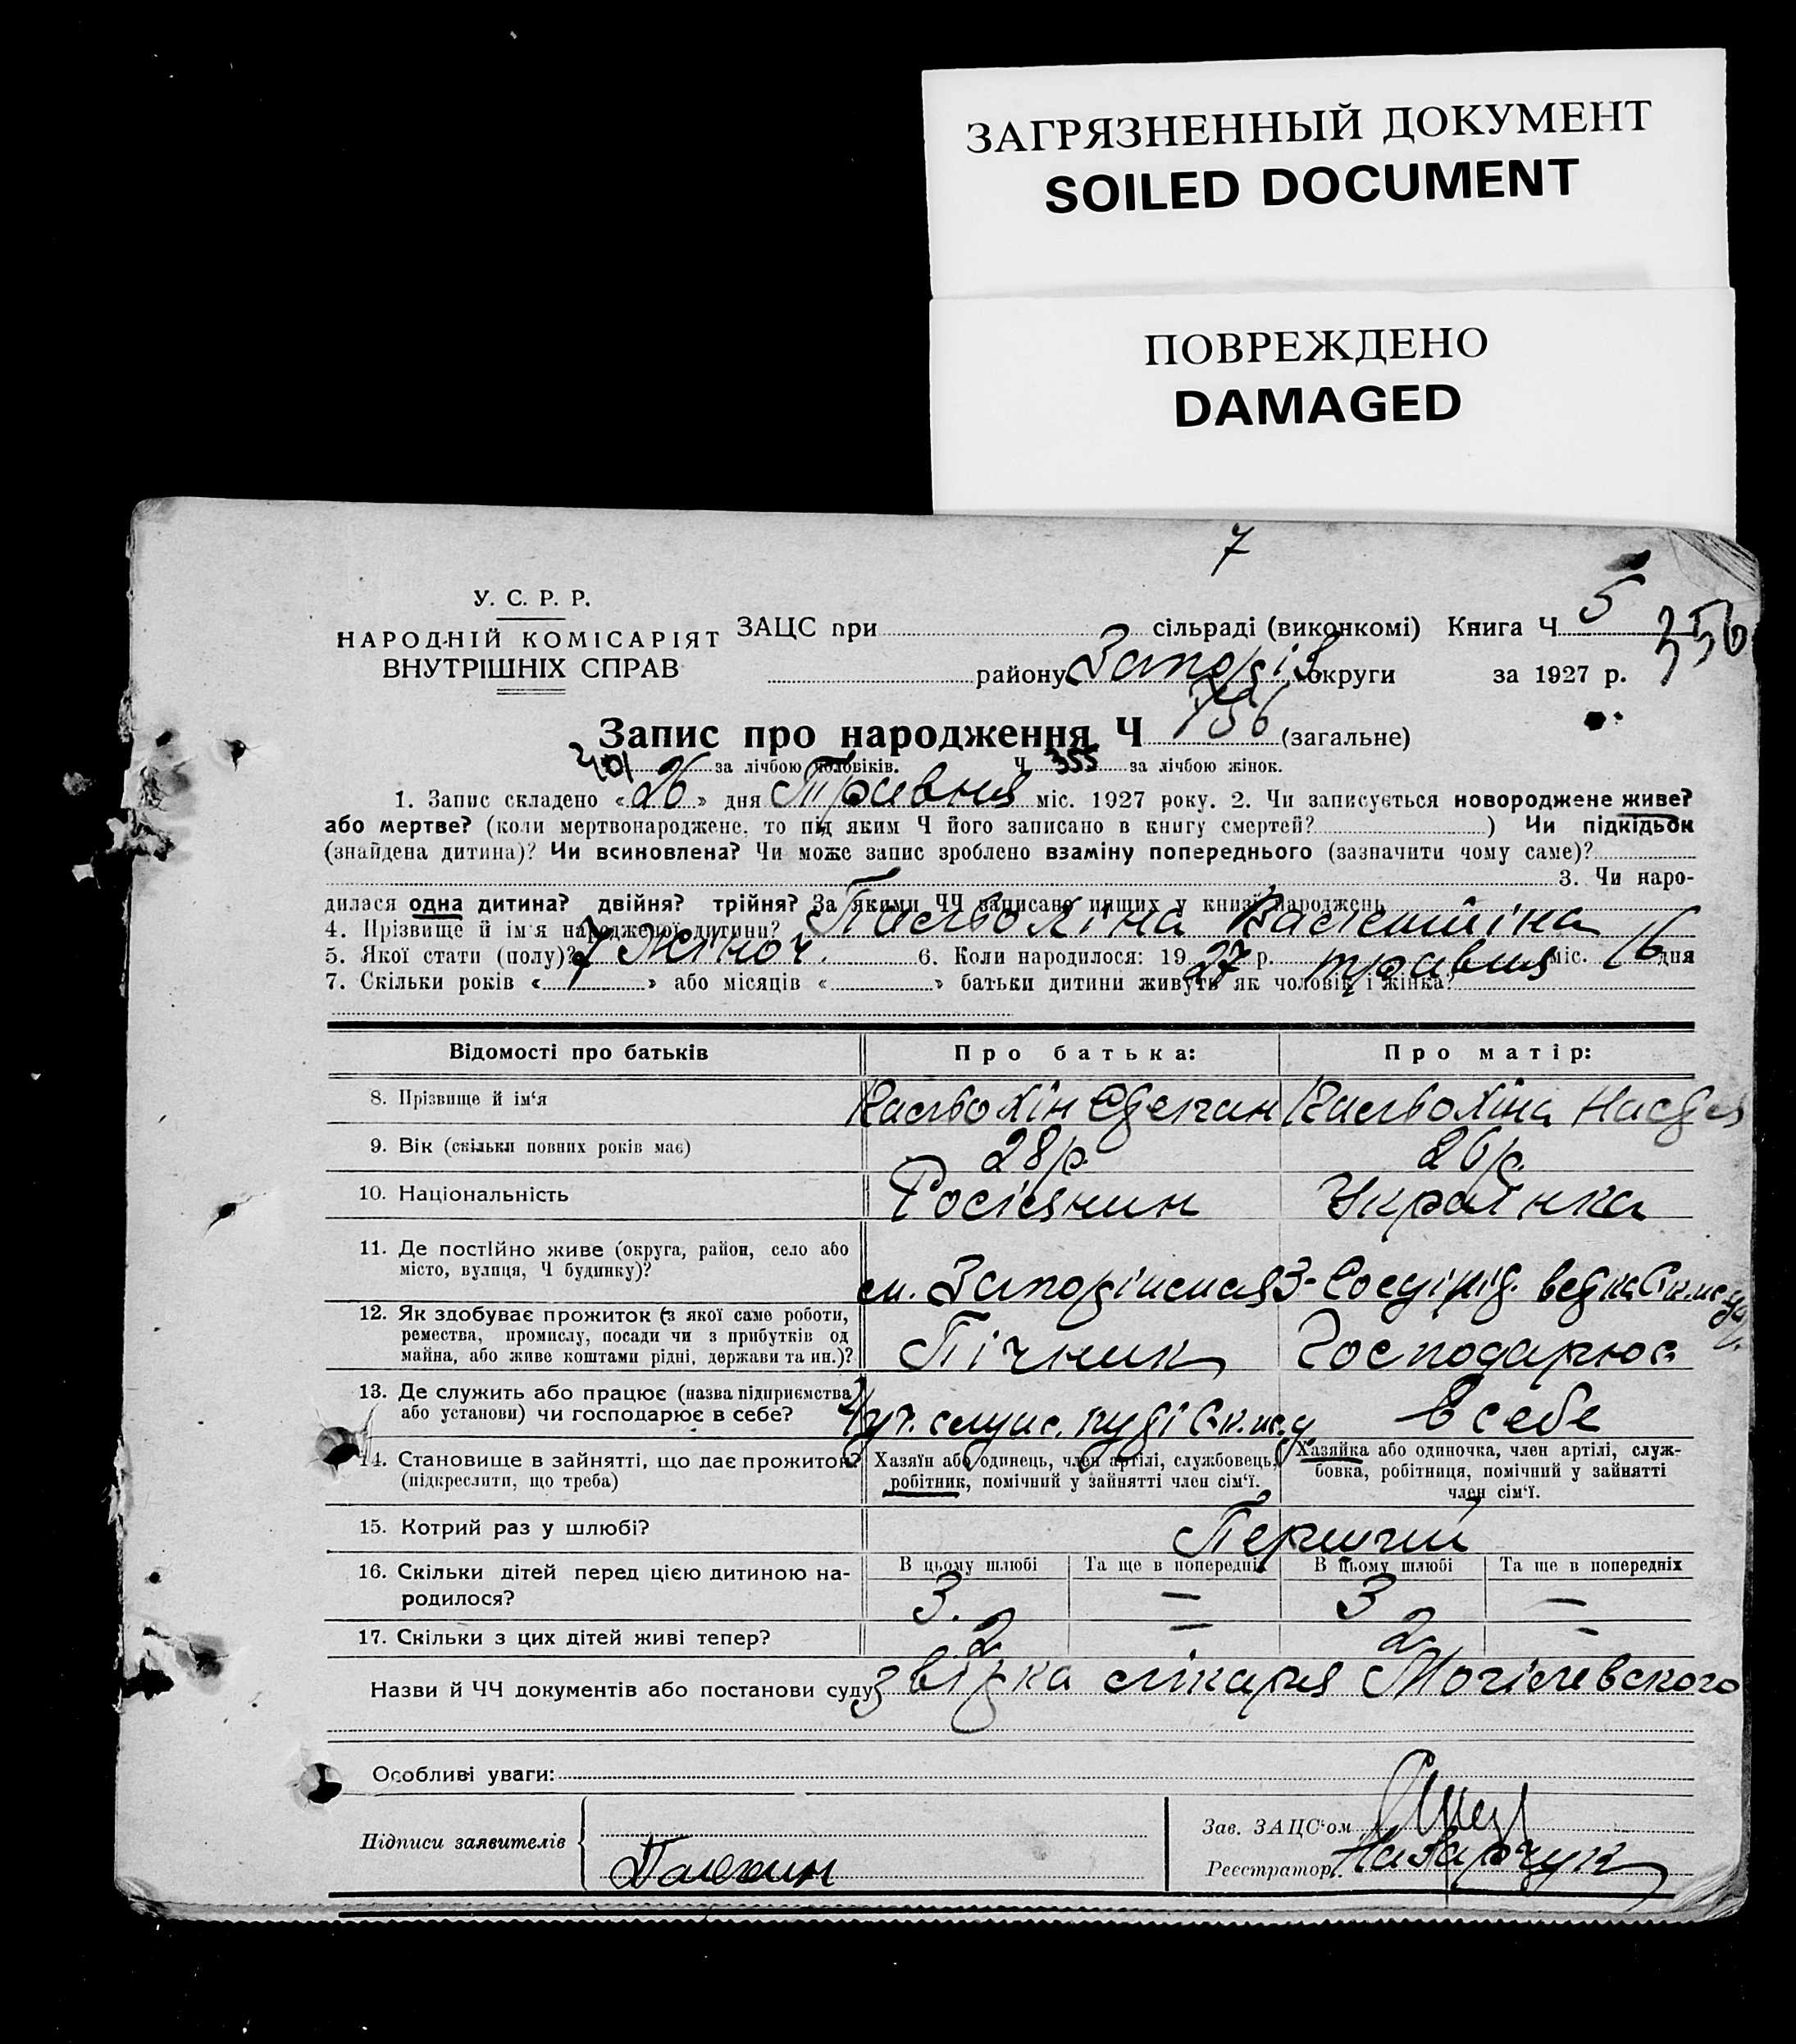 ЗАГРЯЗНЕННЫЙ ДОКУМЕНТ
SOILED DOCUMENT
ПОВРЕЖДЕНО
DAMAGED
7
У. С. Р. Р.
НАРОДНІЙ КОМІСАРІЯТ
ВНУТРІШНІХ СПРАВ
ЗАЦС при сільраді (виконкомі) Книга Ч 5
356
району Запоріз округи за 1927 р.
Запис про народження Ч 756 (загальне)
401 за лічбою чоловіків. Ч 355 за лічбою жінок.
1. Запис складено «26» дня Травня міс. 1927 року. 2. Чи записується новороджене живе?
або мертве? (коли мертвонароджене, то під яким Ч його записано в книгу смертей? ) Чи підкідьок
(знайдена дитина)? Чи всиновлена? Чи може запис зроблено взаміну попереднього (зазначити чому саме)?
3. Чи наро-
дилася одна дитина? двійня? трійня? За якими ЧЧ записано инших у книзі народжень
4. Прізвище й ім'я народженої дитини?
5. Якої стати (полу)? Жіноч. 6. Коли народилося: 1927 р. травня міс. 16 дня
7. Скільки років « » або місяців « » батьки дитини живуть як чоловік і жінка?
Відомості про батьків Про батька: Про матір:
8. Прізвище й ім'я
9. Вік (скільки повних років має) 28 р. 26 р.
10. Національність Росіянин Українка
11. Де постійно живе (округа, район, село або
місто, вулиця, Ч будинку)?
м. Запоріжжя
12. Як здобуває прожиток (з якої саме роботи,
ремества, промислу, посади чи з прибутків од
майна, або живе коштами рідні, держави та ин.)?
Пічник Господарює
13. Де служить або працює (назва підприємства
або установи) чи господарює в себе?
в себе
14. Становище в зайнятті, що дає прожиток?
(підкреслити, що треба)
Хазяїн або одинець, член артілі, службовець,
робітник, помічний у зайнятті член сім'ї.
Хазяйка або одиночка, член артілі, служ-
бовка, робітниця, помічний у зайнятті
член сім'ї.
15. Котрий раз у шлюбі? Перший
16. Скільки дітей перед цією дитиною на-
родилося?
В цьому шлюбі Та ще в попередніх В цьому шлюбі Та ще в попередніх
3. — 3 —
17. Скільки з цих дітей живі тепер? 2 — 2 —
Назви й ЧЧ документів або постанови суду звідка лікаря Могілевского
Особливі уваги:
Підписи заявителів
Зав. ЗАЦС'ом
Реєстратор Назарчук